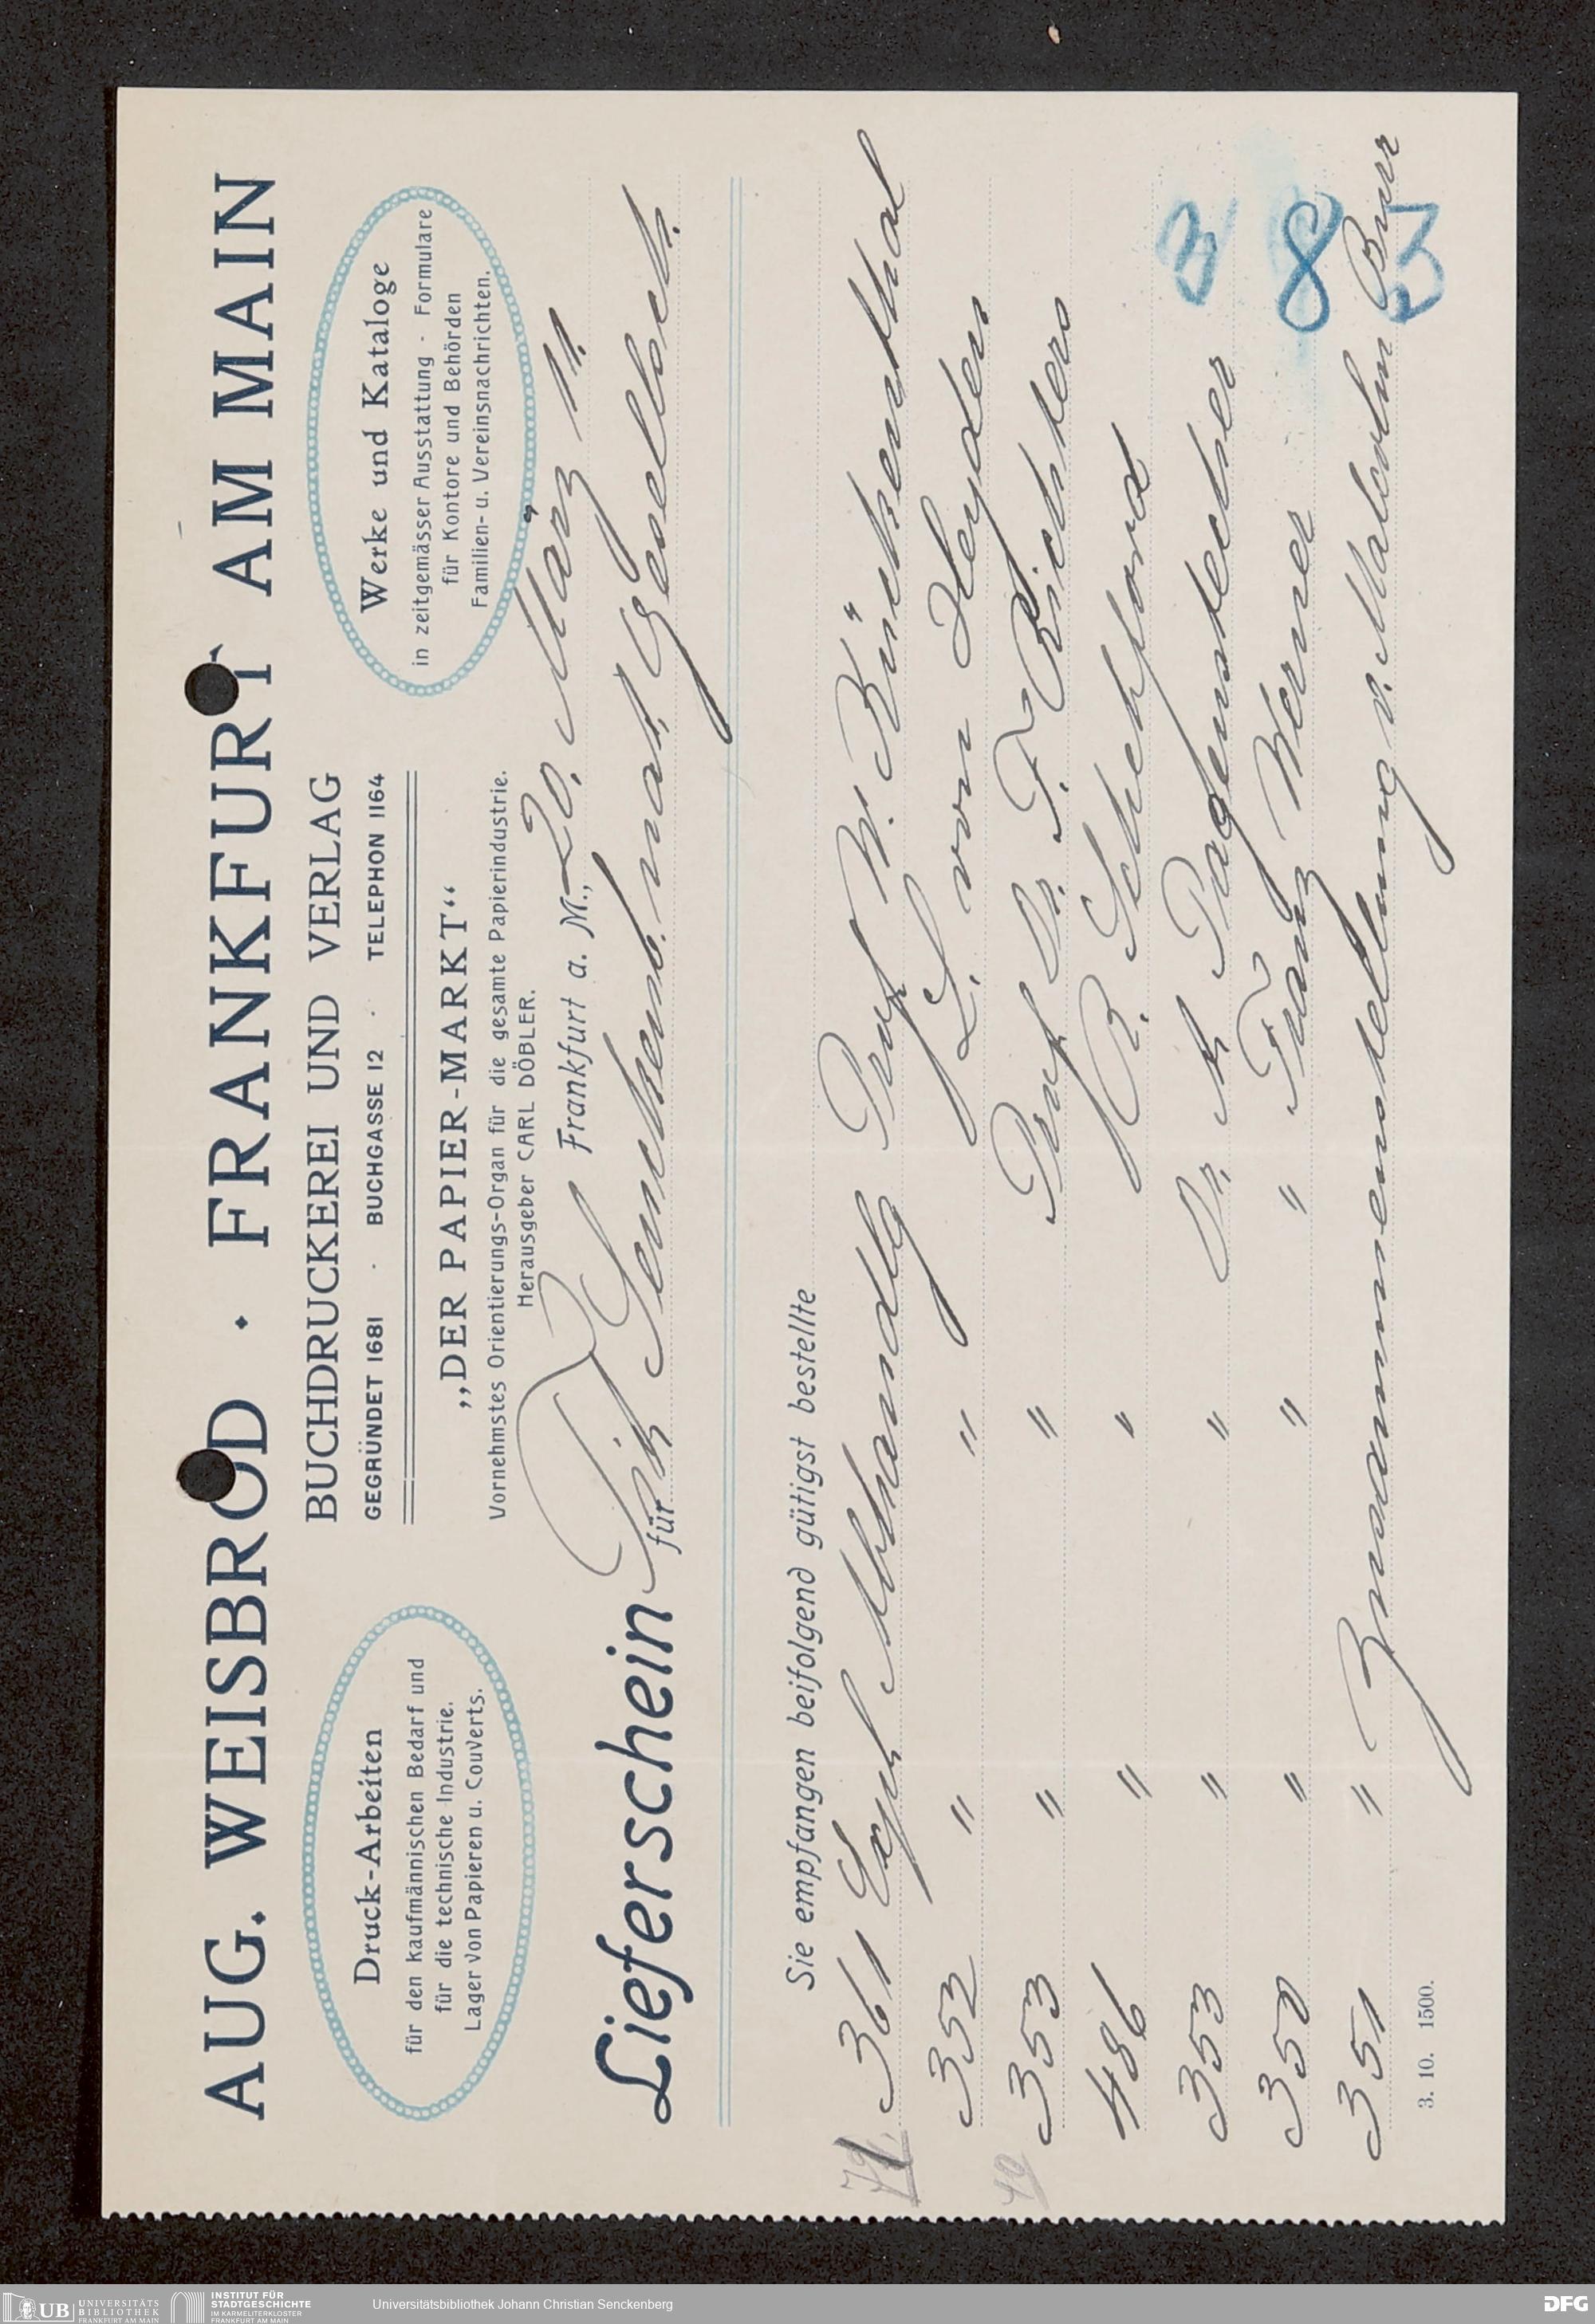 AUG. WEISBROD · FRANKFURT AM MAIN
BUCHDRUCKEREI UND VERLAG
GEGRÜNDET 1681 · BUCHGASSE 12 · TELEPHON 1164
Druck-Arbeiten
für den kaufmännischen Bedarf und
für die technische Industrie.
Lager von Papieren u. Couverts.
„DER PAPIER-MARKT“
Vornehmstes Orientierungs-Organ für die gesamte Papierindustrie.
Herausgeber CARL DÖBLER.
Werke und Kataloge
in zeitgemässer Ausstattung · Formulare
für Kontore und Behörden
Familien- u. Vereinsnachrichten.
Frankfurt a. M., 20. März 11.
Lieferschein für Senckenb. nat. Gesellsch.
Sie empfangen beifolgend gütigst bestellte
361 Expl Abhandlg Prof W. Kückenthal
352 " " L. von Heyden
353 " " Prof Dr. F. Richters
486 " " B. Schehford
353 " " Dr. A Pagenstecher
350 " " " Franz Werner
351 " Zusammenstellung v. Malcolm Burr
3
8
3
3. 10. 1500.
Universitätsbibliothek Johann Christian Senckenberg
UB UNIVERSITÄTS
BIBLIOTHEK
FRANKFURT AM MAIN
INSTITUT FÜR
STADTGESCHICHTE
IM KARMELITERKLOSTER
FRANKFURT AM MAIN
DFG